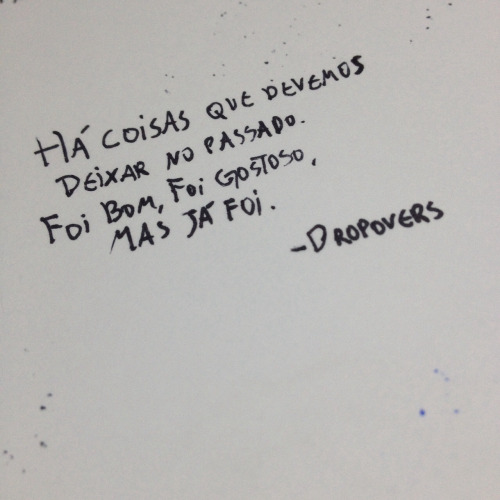 HÁ COISAS QUE DEVEMOS
DEIXAR NO PASSADO.
FOI BOM, FOI GOSTOSO,
MAS JÁ FOI.
-DROPOVERS